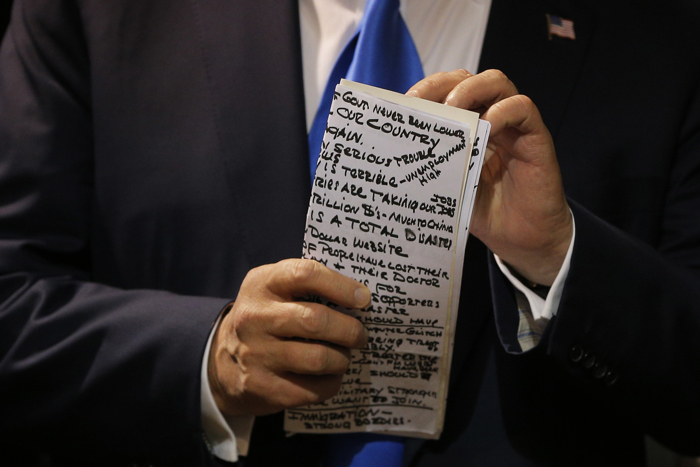 GOUT NEVER BEEN LOWER
OUR COUNTRY
GAIN.
SERIOUS TROUBLE
IS TERRIBLE - UNEMPLOYMENT
HIGH
JOBS
RIES ARE TAKING OUR JOBS
RILLION $'S - MUCH TO CHINA
IS A TOTAL DISASTER
DOLLAR WEBSITE
OF PEOPLE HAVE LOST THEIR
& THEIR DOCTOR
FOR
ASTER
SHOULD HAVE
GLITCH
TREATED
SHOULD
MILITARY STRONGER
WANT TO JOIN.
IMMIGRATION -
STRONG BORDERS.